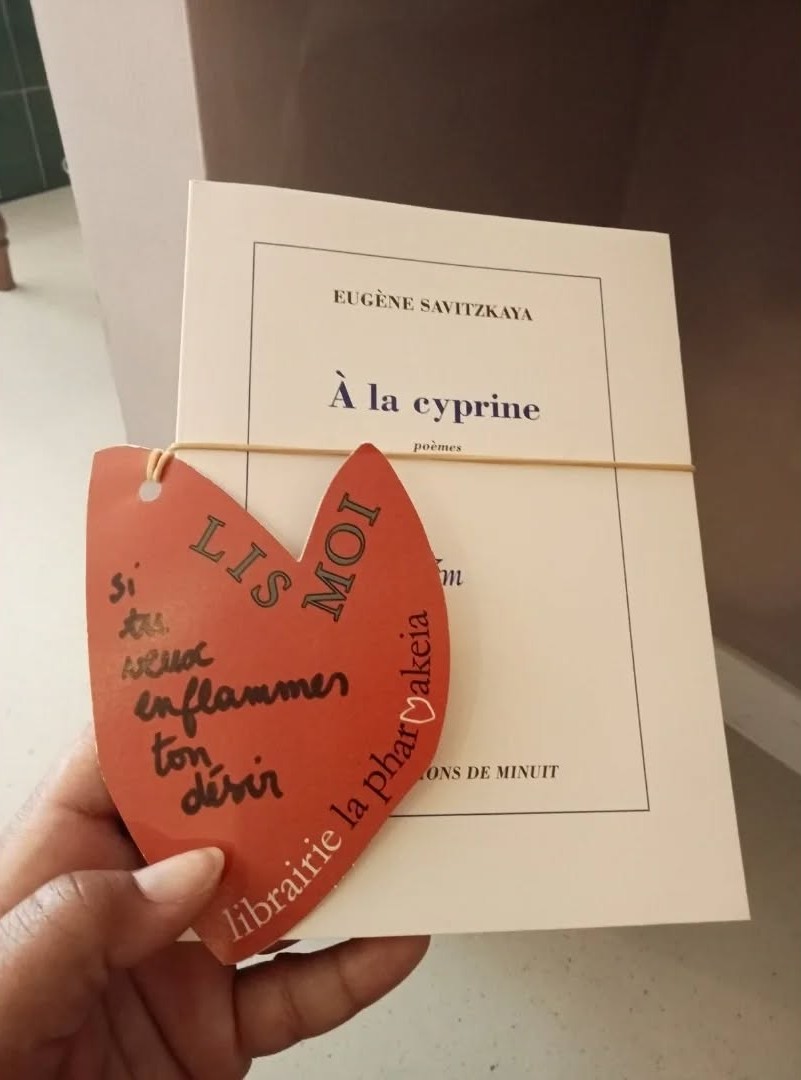 EUGÈNE SAVITZKAYA
À la cyprine
poèmes
m
IONS DE MINUIT
LIS MOI
si
tu
veux
enflammes
ton
désir
librairie la phar♡akeia